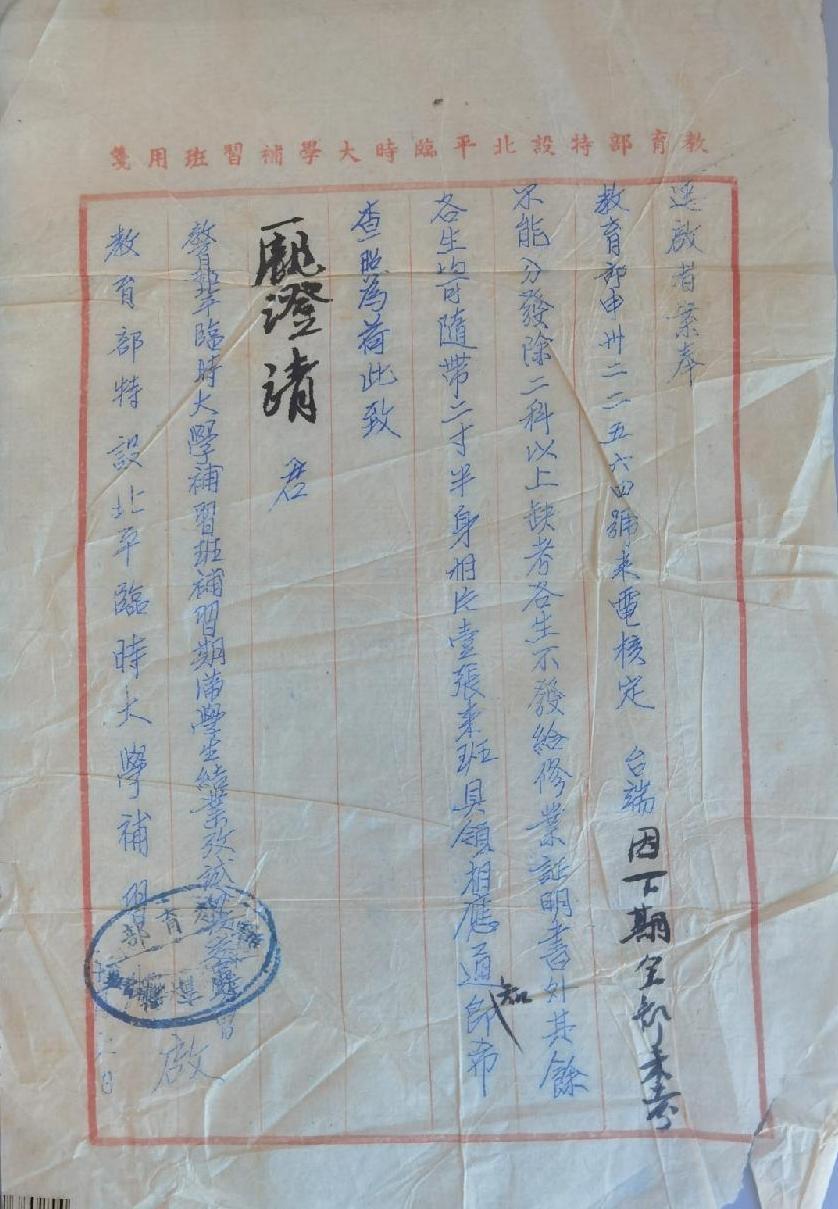 教育部特設北平臨時大學補習班用箋
逕啟者案奉
教育部申卅二二五六四號来電核定 台端因下期全部未考
不能分發除二科以上缺考各生不發給修業証明書外其餘
各生皆可隨帶二寸半身相片壹張来班具領相應通知即希
查照為荷此致
澄請 君
臨時大學補習班補習期滿學生結業攷試
教育部特設北平臨時大學補習
啟
教育部
日